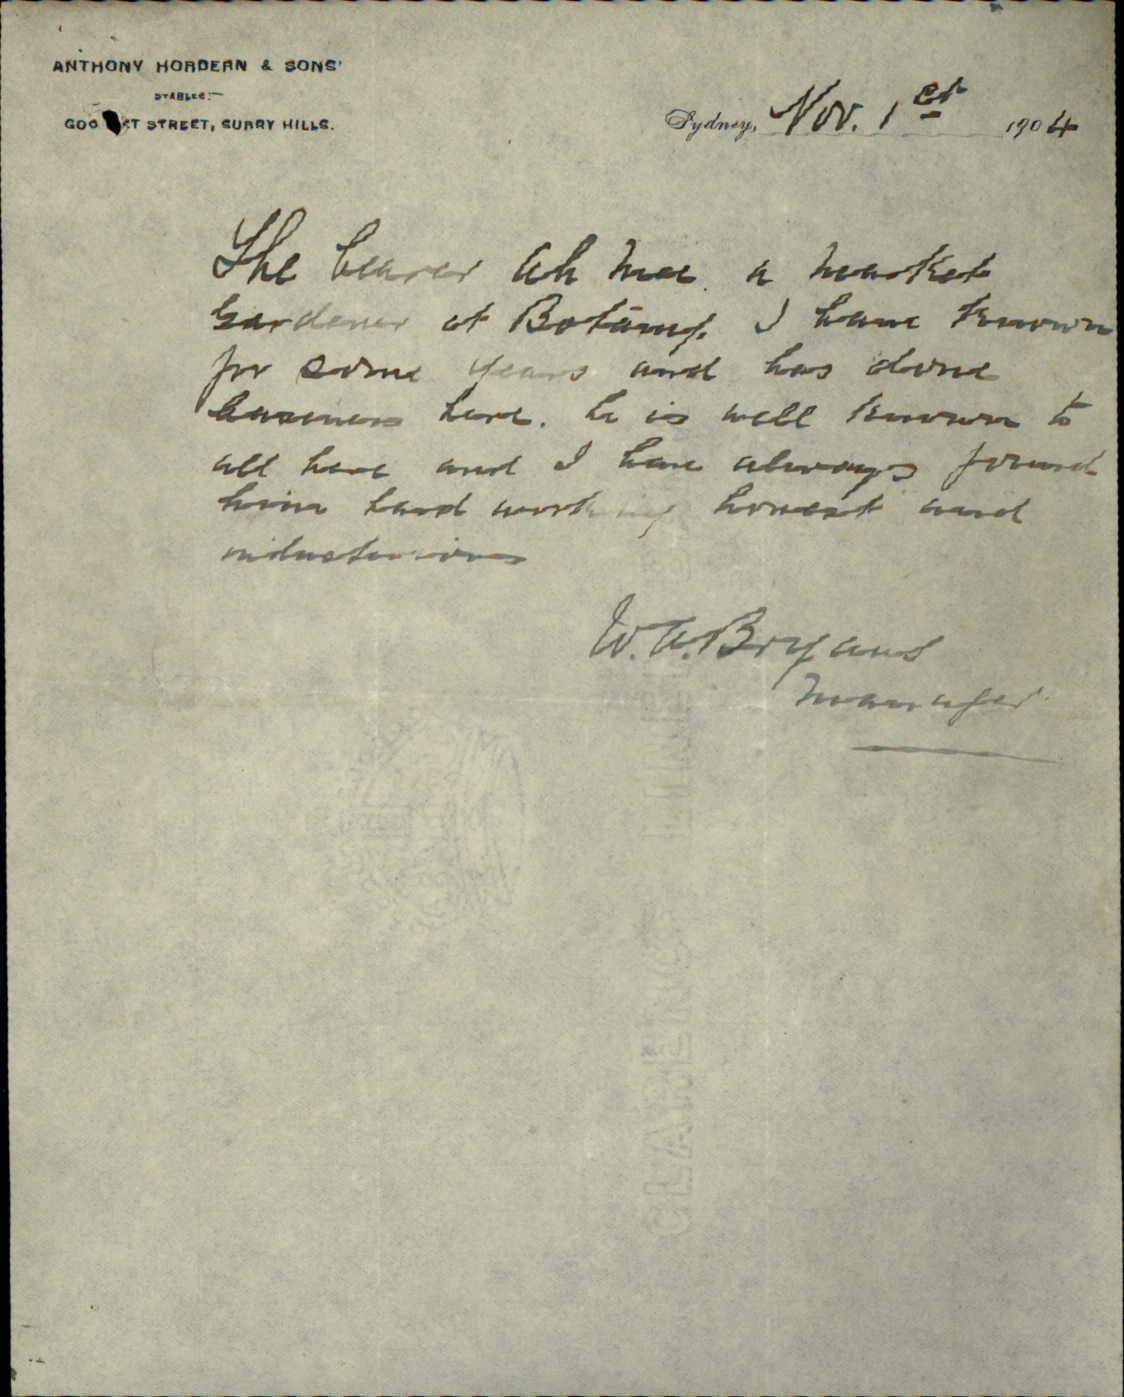 ANTHONY HORDERN & SONS'
STABLES:—
GOO KT STREET, SURRY HILLS.
Sydney, Nov. 1st 1904
The bearer Ah Moe. a market
Gardener at Botany. I have known
for some years and has done
business here. he is well known to
all here and I have always found
him hard working honest and
industerious
W. A. Bryans
Manager